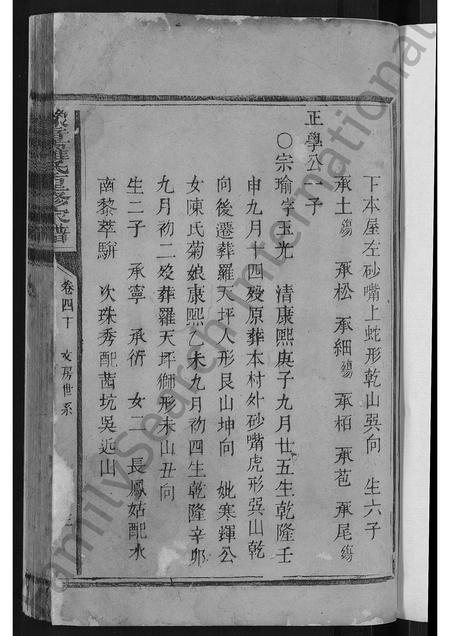 下本屋左砂嘴上蛇形乾山巽向 生六子
承土殤 承松 承細殤 承栢 承苞 承尾殤
正學公一子
〇宗瑜字玉光 清康熙庚子九月廿五生乾隆壬
申九月十四歿原葬本村外砂嘴虎形巽山乾
向後遷葬羅天坪人形艮山坤向 妣寒輝公
女陳氏菊娘康熙乙未九月初四生乾隆辛卯
九月初二歿葬羅天坪獅形未山丑向
生二子 承寧 承衍 女二 長鳳姑配水
南黎萃駢 次珠秀配茜坑吳近山
豫章羅氏重修族譜
卷四十 文房世系
FamilySearch International